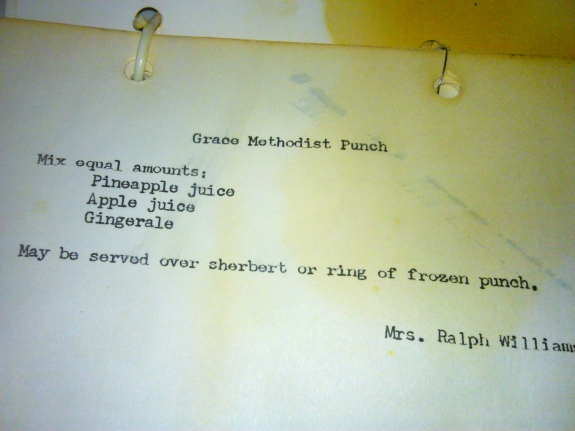 Grace Methodist Punch
Mix equal amounts:
Pineapple juice
Apple juice
Gingerale
May be served over sherbert or ring of frozen punch.
Mrs. Ralph Williams